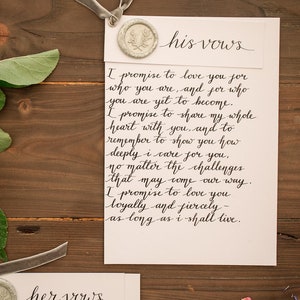 his vows
I promise to love you for
who you are, and for who
you are yet to become.
I promise to share my whole
heart with you, and to
remember to show you how
deeply i care for you,
no matter the challenges
that may come our way.
I promise to love you
loyally and fiercely -
as long as i shall live.
her vows